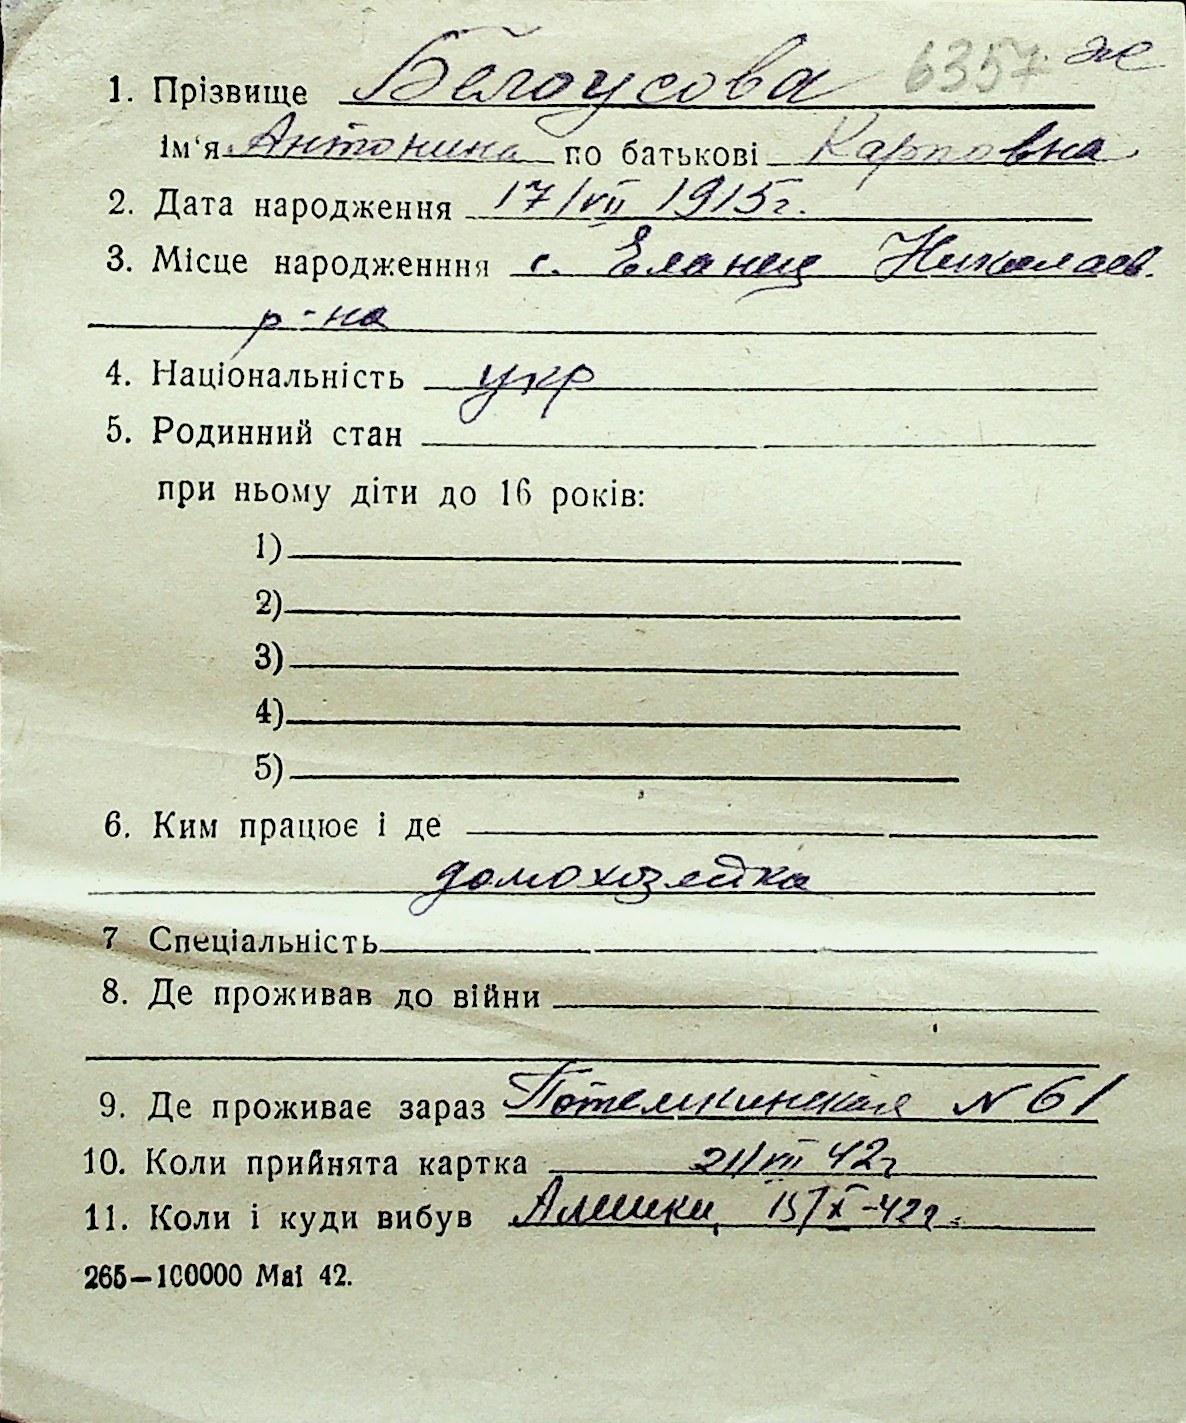 1. Прізвище Белоусова 6357 ж
ім'я Антонина по батькові Карповна
2. Дата народження 17/VII 1915г.
3. Місце народженння с. Еланец Николаев.
р-на
4. Національність укр
5. Родинний стан
при ньому діти до 16 років:
1)
2)
3)
4)
5)
6. Ким працює і де
домохозяйка
7 Спеціальність
8. Де проживав до війни
9. Де проживає зараз Потемкинская N 61
10. Коли прийнята картка 21/VII 42г
11. Коли і куди вибув Алешки, 15/X-42г.
265—100000 Mai 42.